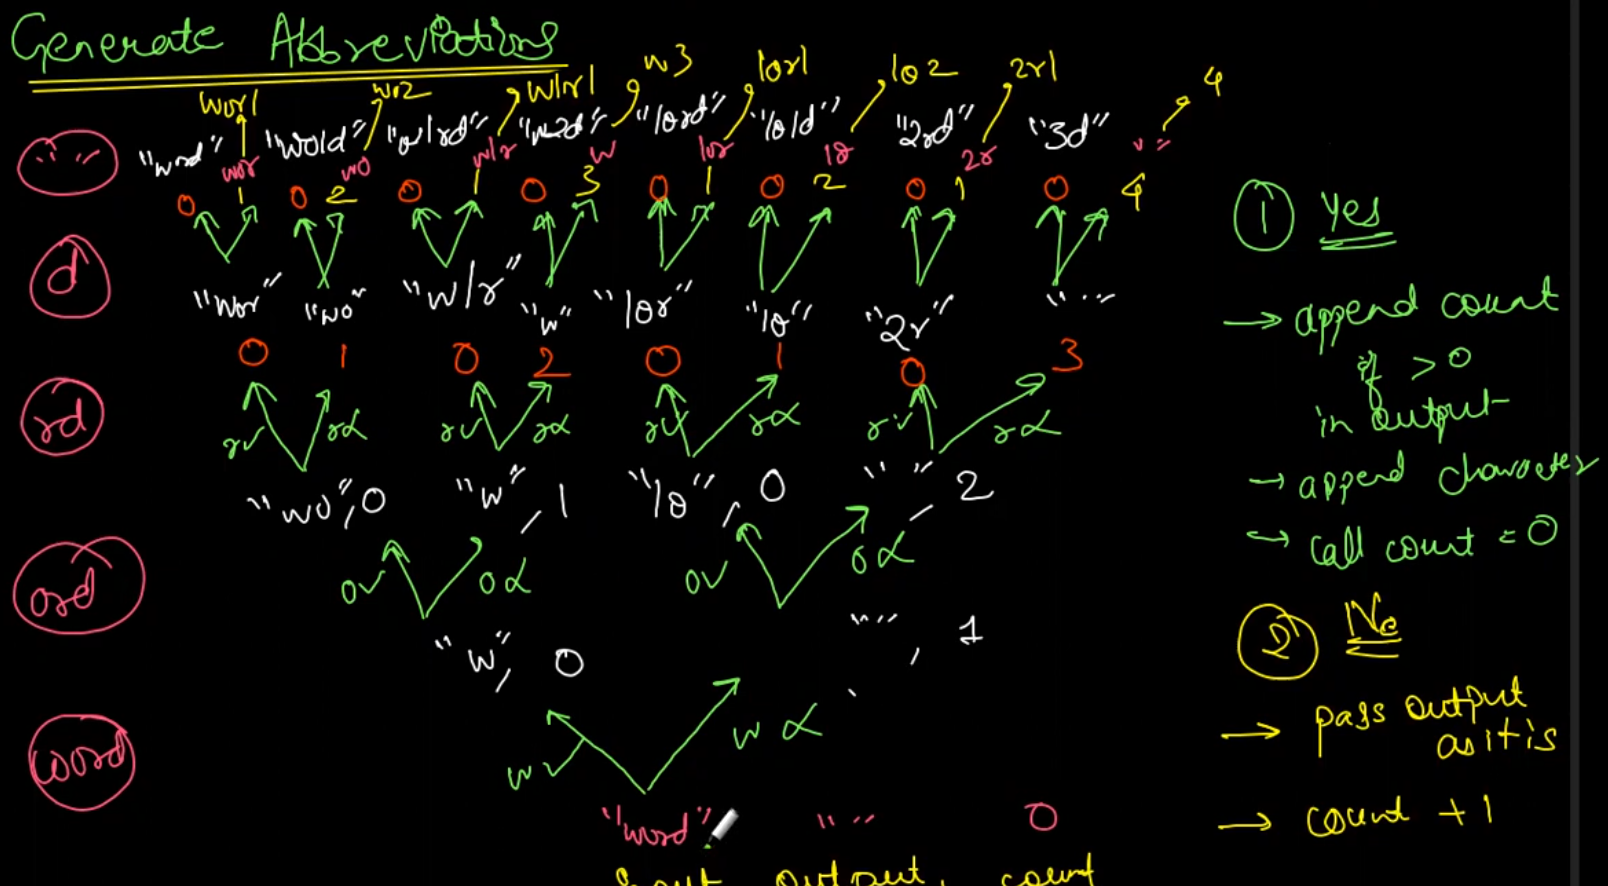 Generate Abbreviations
wor1 wo2 w1r1 w3 1or1 1o2 2r1 4
"word" "wo1d" "w1rd" "w2d" "1ord" "1o1d" "2rd" "3d"
" " wor wo w1r w 1or 1o 2r " "
0 1 0 2 0 1 0 3 0 1 0 2 0 1 0 4
d
"wor" "wo" "w1r" "w" "1or" "1o" "2r" " "
0 1 0 2 0 1 0 3
rd r✓ rx r✓ rx r✓ rx r✓ rx
"wo", 0 "w", 1 "1o", 0 " ", 2
ord o✓ ox o✓ ox
"w", 0 " ", 1
word w✓ wx
"word" " " 0
input output, count
1 Yes
→ append count
if > 0
in output
→ append character
→ call count = 0
2 No
→ pass output
as it is
→ count + 1